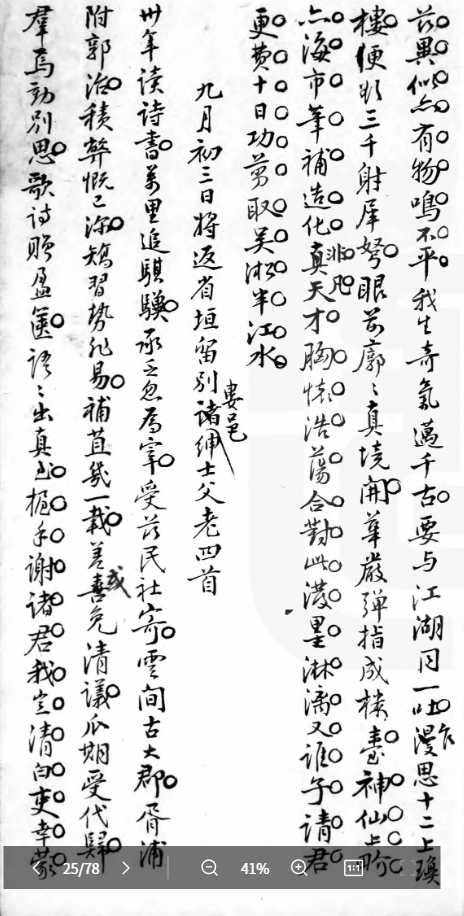 茲異似與有物鳴不平我生奇氣邁千古要与江湖同一吐漫思十二上瑤
樓便擬三千射犀弩眼前廓々真境開華嚴彈指成樓臺神仙上
海市筆補造化真天才胸懷浩蕩合對此潑墨淋漓又誰子請君
非凡
更费十日功剪取吴淞半江水
九月初三日將返省垣留別諸紳士父老四首
婁邑
卅年读詩書萬里追騏驥承乏忽為宰受茲民社寄雲間古大郡胥浦
附郭治積弊慨已深矯習势非易補苴幾一載差喜免清議瓜期受代歸
或
羣焉勸別思歌詩贈盈箧語々出真執手謝諸君我豈清白吏幸蒙
25/78
41%
1:1